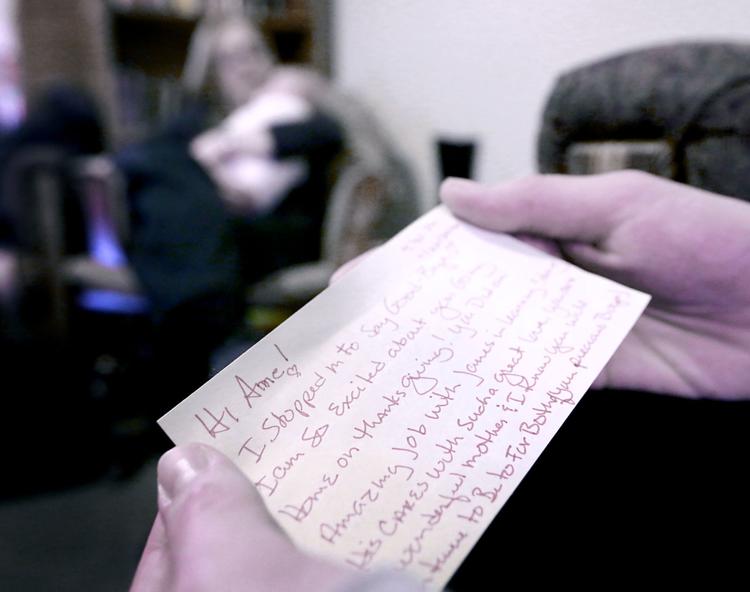 Hi Amie!
I stopped in to say Good Bye
I am so Excited about you Going
Home on thanksgiving! You Did an
Amazing Job with James in learning
His CARES with such a great love
wonderful mother & I know you will
to Be to For Both of you precious Boys!